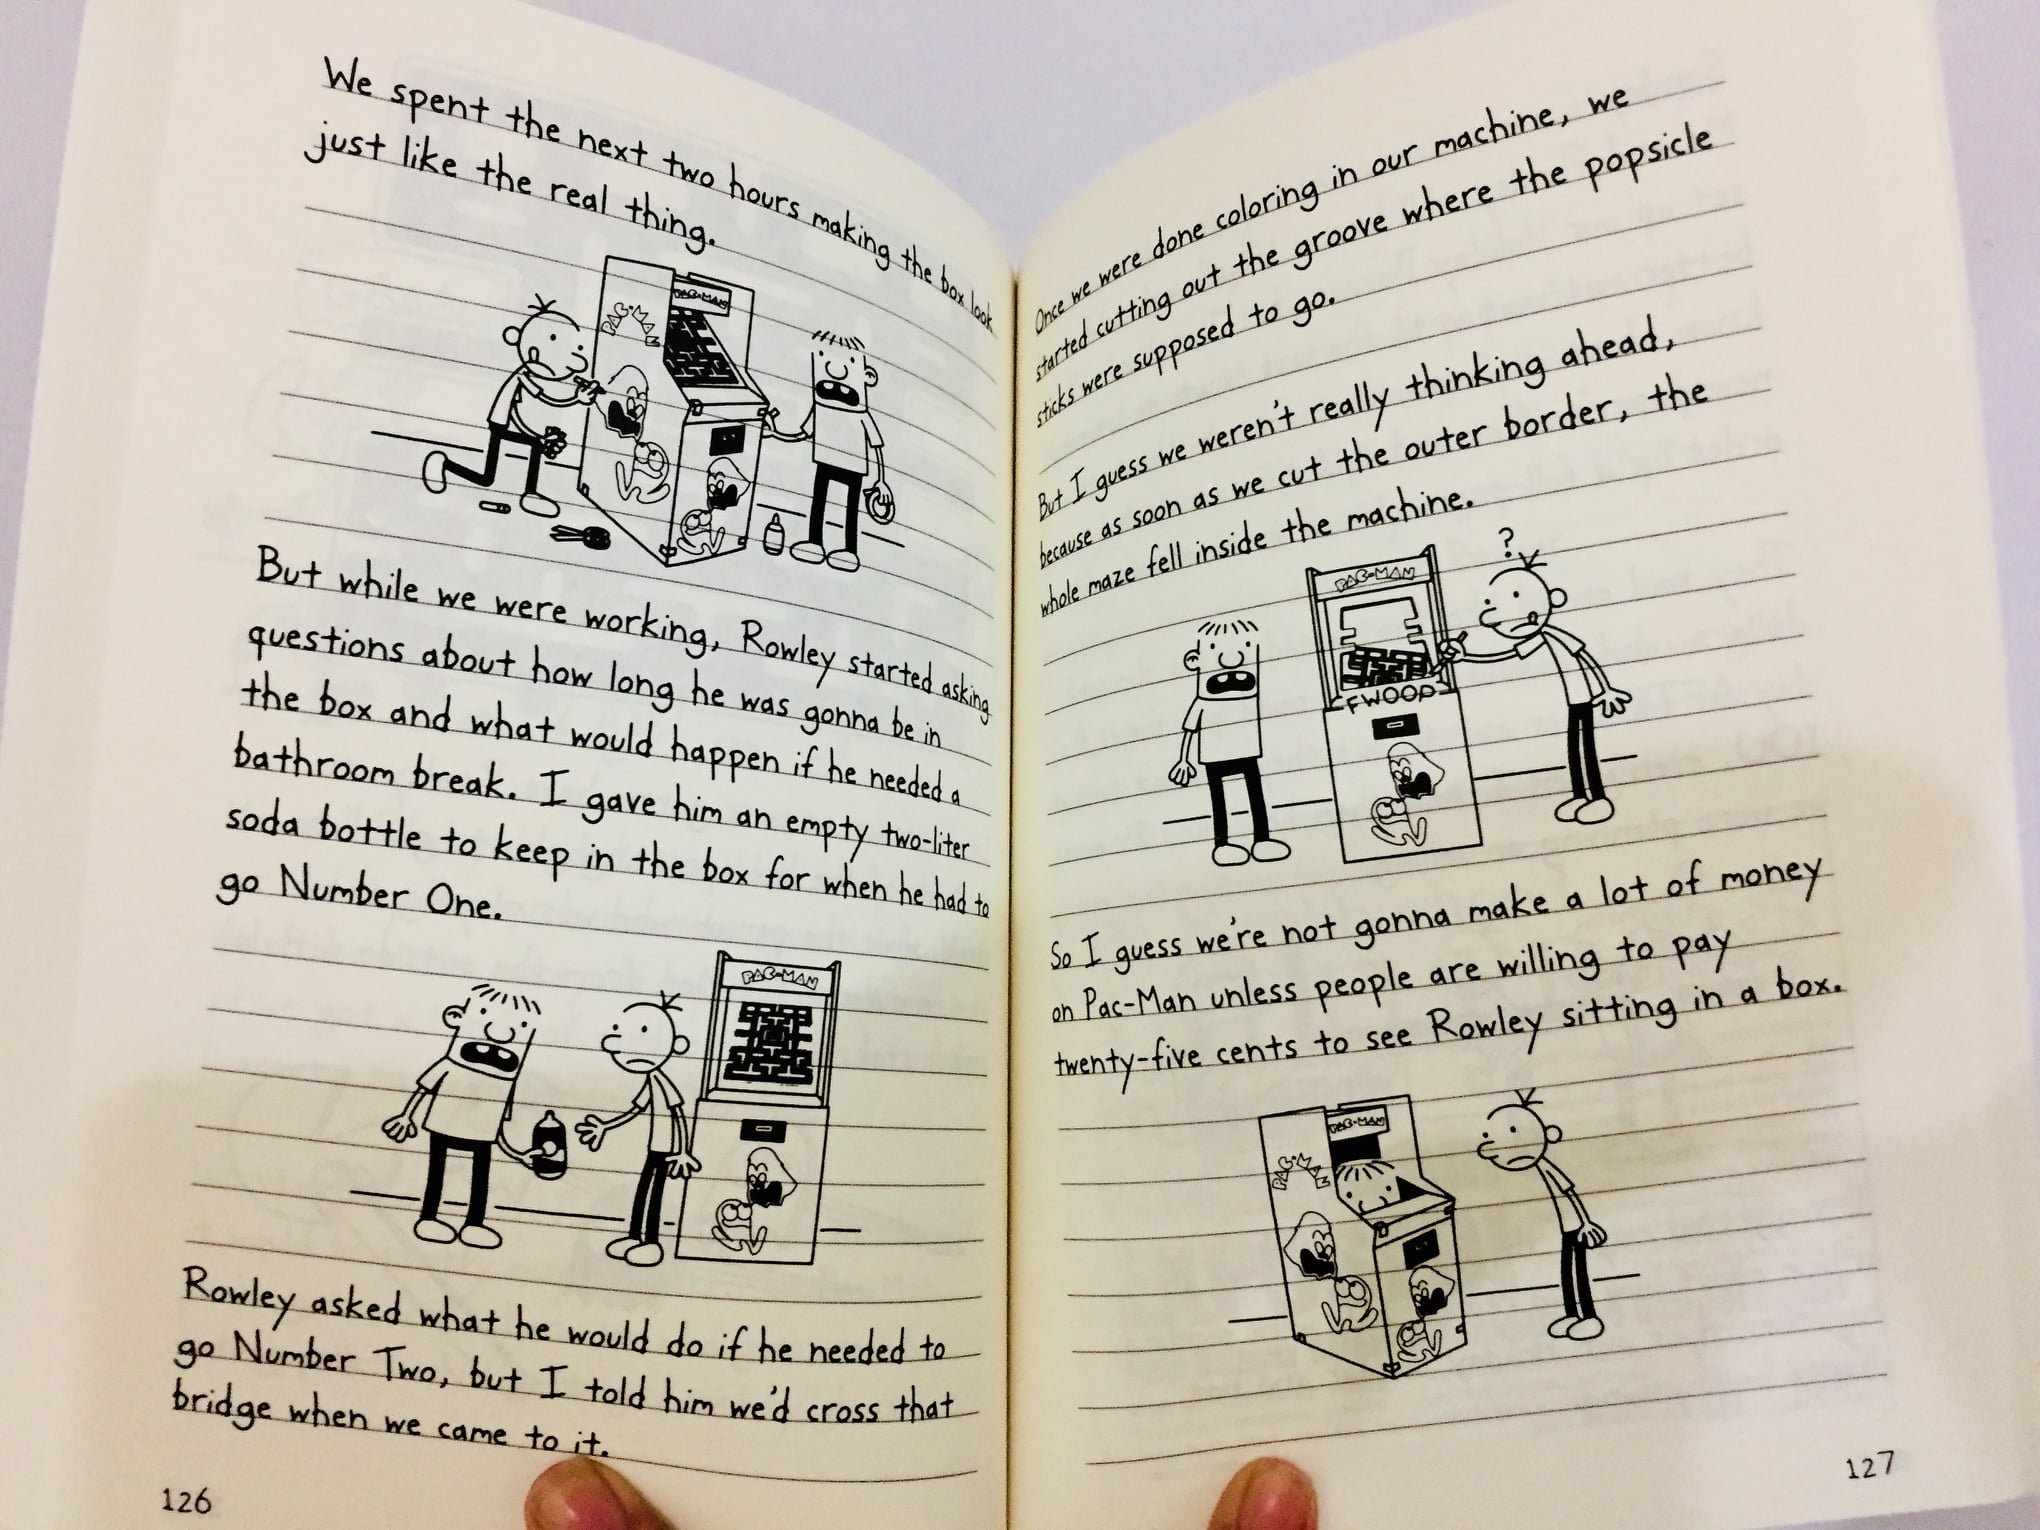 We spent the next two hours making the box look
just like the real thing.
PAC-MAN
PAC-MAN
But while we were working, Rowley started asking
questions about how long he was gonna be in
the box and what would happen if he needed a
bathroom break. I gave him an empty two-liter
soda bottle to keep in the box for when he had to
go Number One.
PAC-MAN
Rowley asked what he would do if he needed to
go Number Two, but I told him we'd cross that
bridge when we came to it.
126
Once we were done coloring in our machine, we
started cutting out the groove where the popsicle
sticks were supposed to go.
But I guess we weren't really thinking ahead,
because as soon as we cut the outer border, the
whole maze fell inside the machine.
?
PAC-MAN
FWOOP
So I guess we're not gonna make a lot of money
on Pac-Man unless people are willing to pay
twenty-five cents to see Rowley sitting in a box.
PAC-MAN
PAC-MAN
127